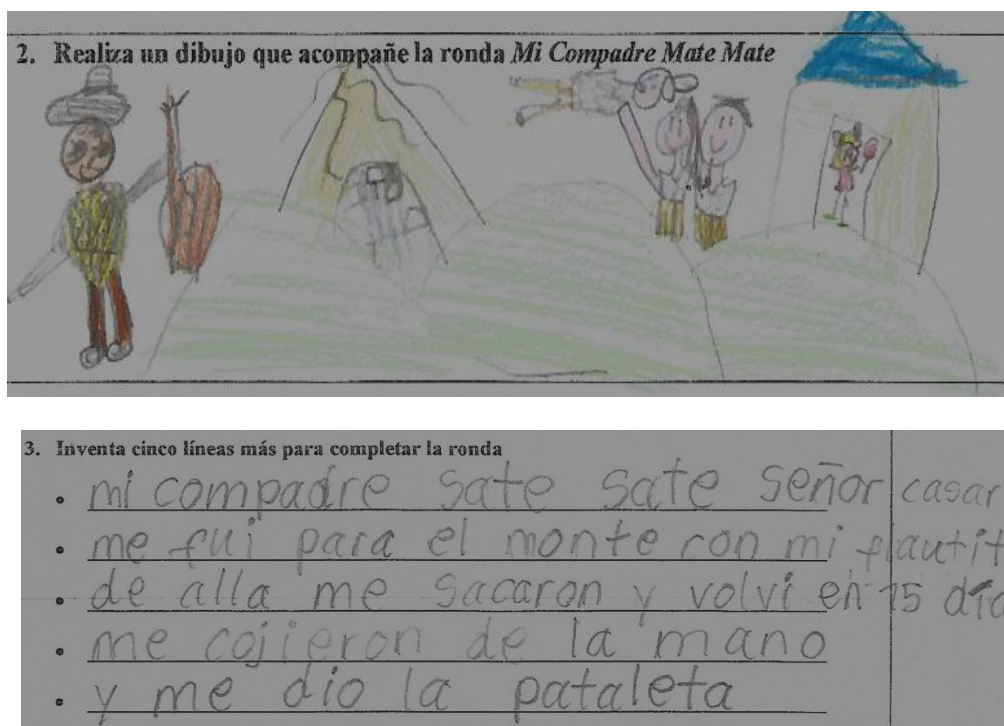 2. Realiza un dibujo que acompañe la ronda Mi Compadre Mate Mate
3. Inventa cinco líneas más para completar la ronda
• mi compadre sate sate señor casar
• me fui para el monte con mi flautit
• de alla me sacaron y volvi en 15 día
• me cojieron de la mano
• y me dio la pataleta